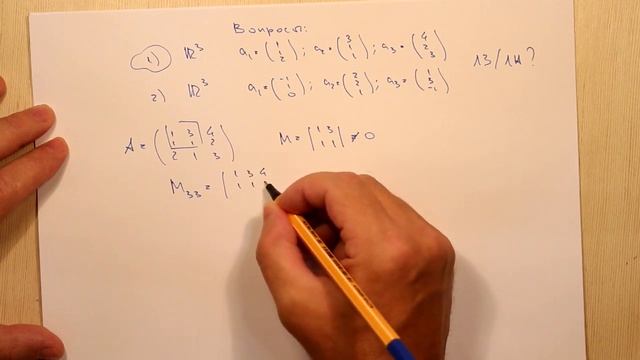 Вопросы:
1) ℝ³ a₁=(1 1 2); a₂=(3 1 1); a₃=(4 2 3) 13/14?
2) ℝ³ a₁=(-1 1 0); a₂=(2 2 1); a₃=(1 3 -1)
A=(1 3 4 1 1 2 2 1 3) M=|1 3 1 1|≠0
M₃₃=|1 3 4 1 1